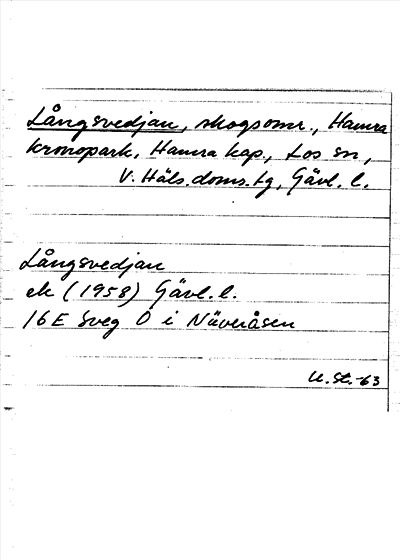 Långsvedjan, skogsomr., Hamra
kronopark, Hamra kap., Los sn,
V. Häls. doms. tg, Gävl. l.
Långsvedjan
ek (1958) Gävl. l.
16E Sveg O i Näveråsen
U. St. -63